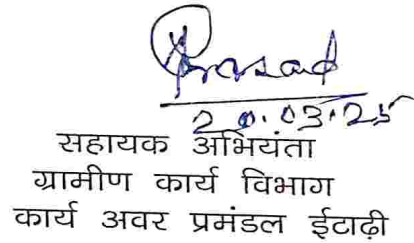 Prasad
20.03.25
सहायक अभियंता
ग्रामीण कार्य विभाग
कार्य अवर प्रमंडल ईटाढ़ी